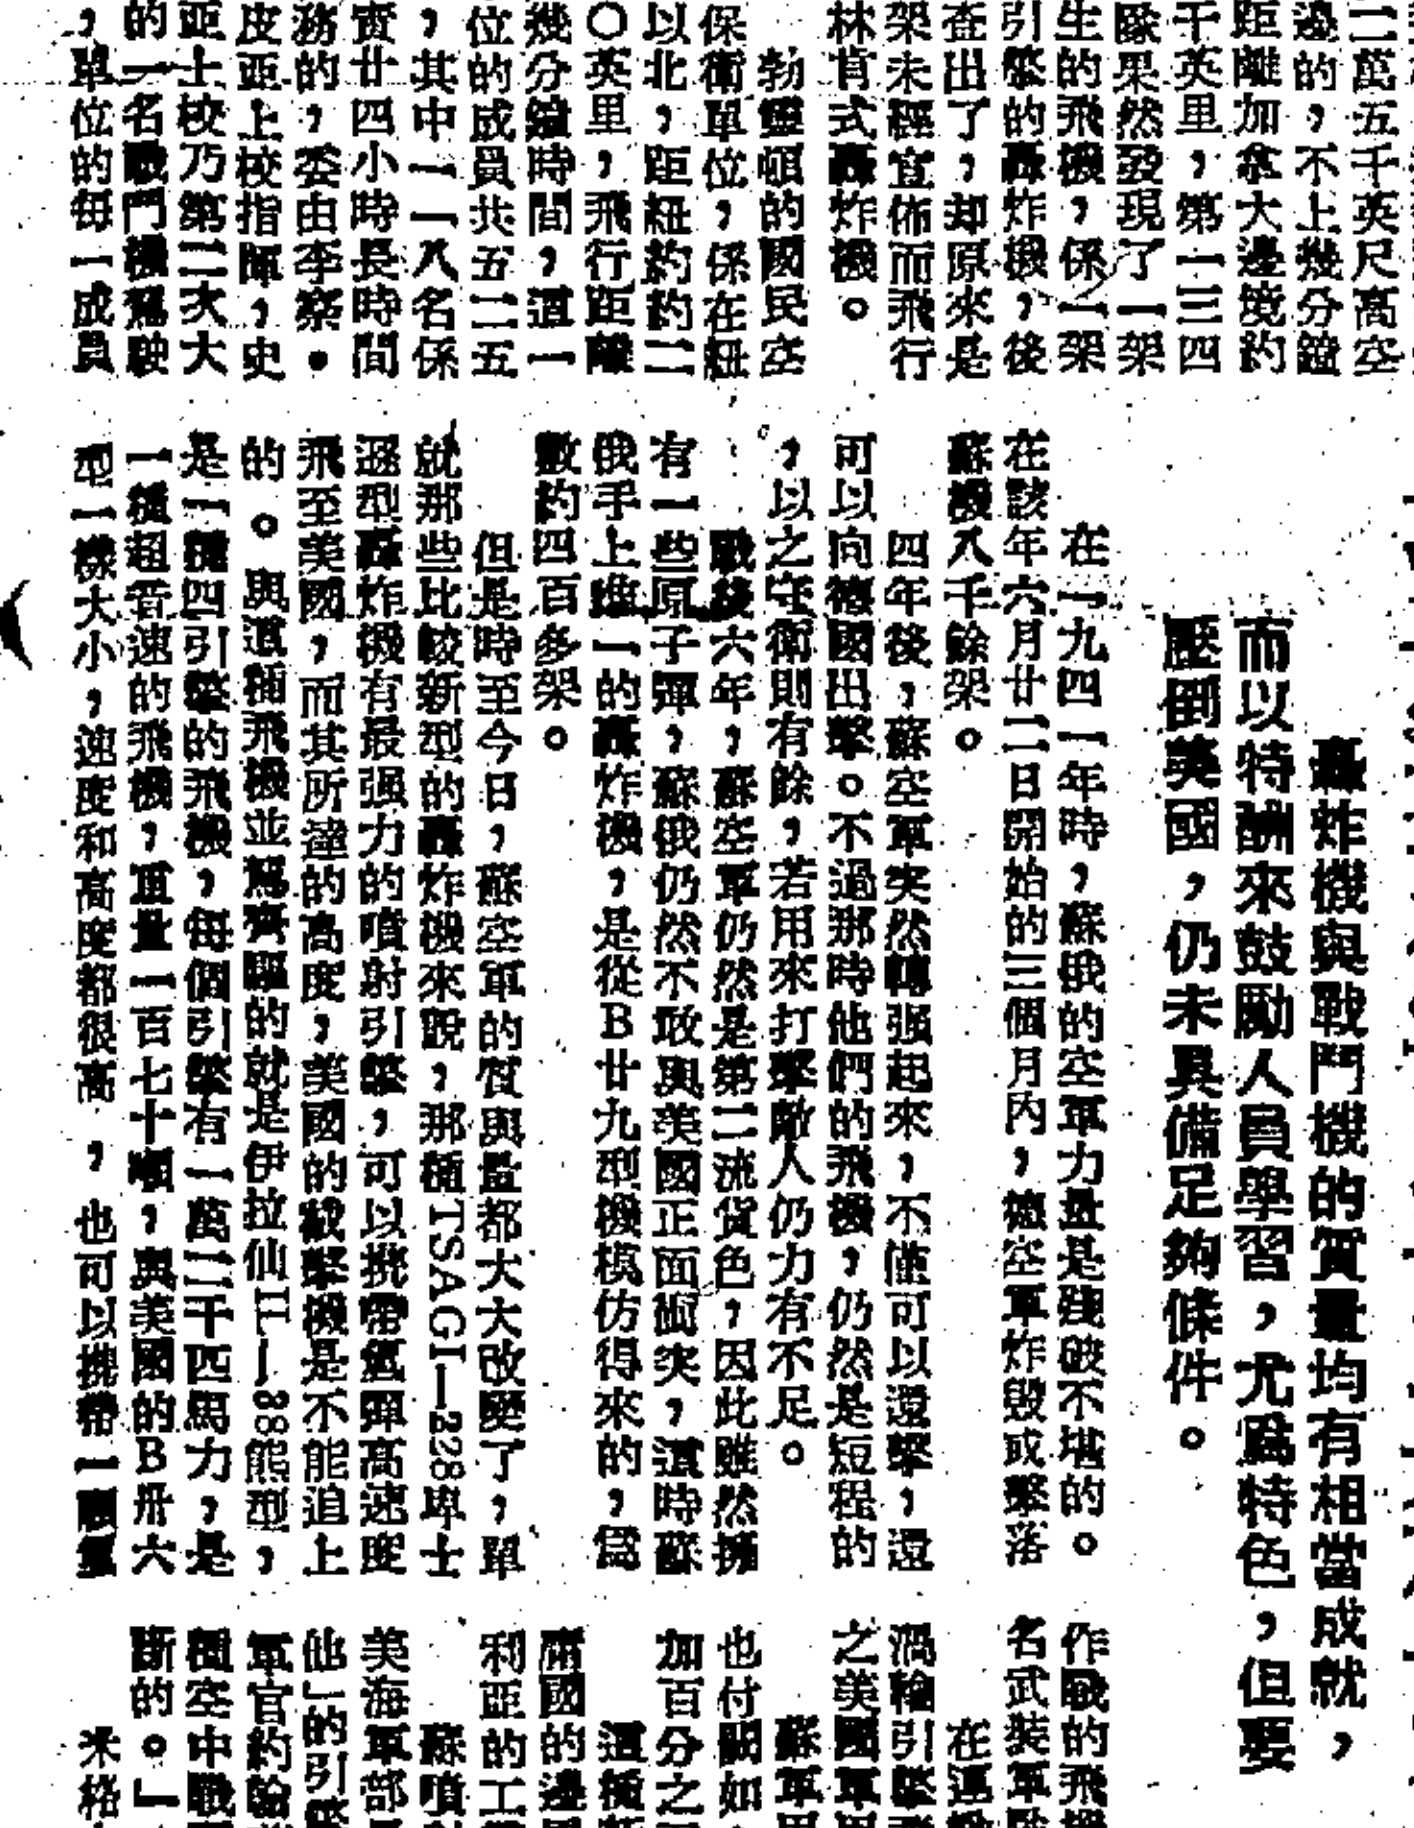 二萬五千英尺高空
邊的，不上幾分鐘
距離加拿大邊境約
千英里，第一三四
隊果然發現了一架
生的飛機，係一架
引擎的轟炸機，後
查出了，却原來是
架未經宣佈而飛行
林肯式轟炸機。
勃靈頓的國民空
保衛單位，係在紐
以北，距紐約約二
〇英里，飛行距離
幾分鐘時間，這一
位的成員共五二五
，其中一一八名係
實廿四小時長時間
務的，委由李察·
皮亞上校指揮，史
亞士校乃第二次大
的一名戰鬥機駕駛
，單位的每一成員
轟炸機與戰鬥機的質量均有相當成就，
而以特酬來鼓勵人員學習，尤爲特色，但要
壓倒美國，仍未具備足夠條件。
在一九四一年時，蘇俄的空軍力量是殘破不堪的。
在該年六月廿二日開始的三個月內，德空軍炸毀或擊落
蘇機八千餘架。
四年後，蘇空軍突然轉强起來，不僅可以還擊，還
可以向德國出擊。不過那時他們的飛機，仍然是短程的
，以之守衛則有餘，若用來打擊敵人仍力有不足。
戰後六年，蘇空軍仍然是第二流貨色，因此雖然擁
有一些原子彈，蘇俄仍然不敢與美國正面衝突，這時蘇
俄手上唯一的轟炸機，是從B廿九型機模仿得來的，爲
數約四百多架。
但是時至今日，蘇空軍的質與量都大大改變了，單
就那些比較新型的轟炸機來說，那種TSAGI—228卑士
遜型轟炸機有最强力的噴射引擎，可以携帶氫彈高速度
飛至美國，而其所達的高度，美國的截擊機是不能追上
的。與這種飛機並駕齊驅的就是伊拉仙IL—88熊型，
是一種四引擎的飛機，每個引擎有一萬二千匹馬力，是
一種超音速的飛機，重量一百七十噸，與美國的B卅六
型一樣大小，速度和高度都很高，也可以携帶一顆氫
作戰的飛機
名武裝軍
在運
渦輪引擎
之美國軍
蘇軍
也付闕如
加百分之
這種
南國的邊
利亞的工
蘇噴
美海軍部
他」的引擎
軍官約翰
種空中戰
斷的。」
米格